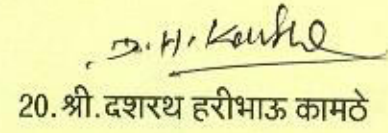 D. H. Kamthe
20.श्री.दशरथ हरीभाऊ कामठे